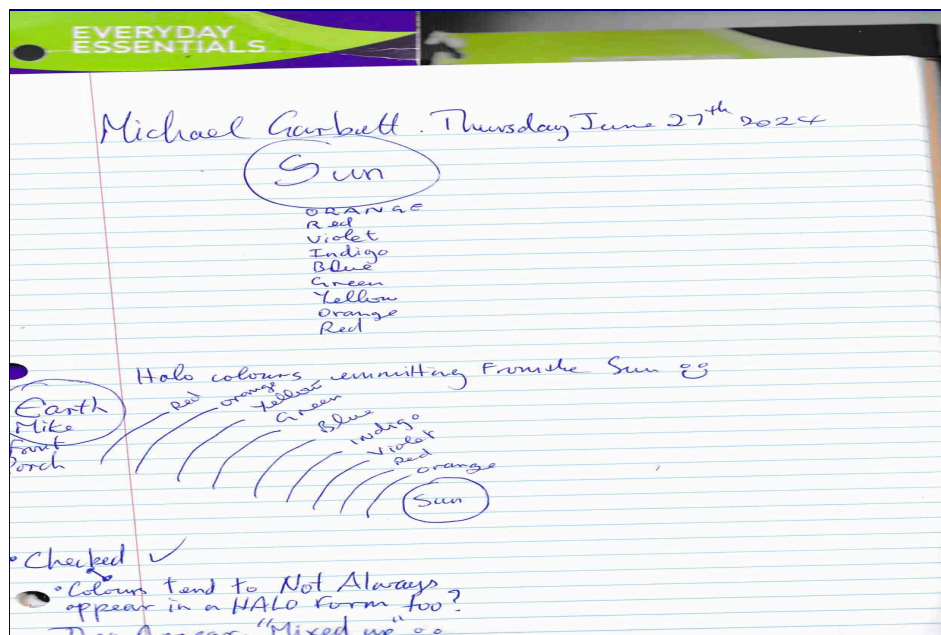 EVERYDAY
ESSENTIALS
Michael Garbutt. Thursday June 27th 2024
Sun
ORANGE
Red
Violet
Indigo
Blue
Green
Yellow
Orange
Red
Halo colours emmitting From the Sun
Earth
Mike
Front
Porch
Red
Orange
Yellow
Green
Blue
Indigo
Violet
Red
Orange
Sun
Checked ✓
Colours tend to Not Always
appear in a HALO Form too?
They Appear "Mixed up"